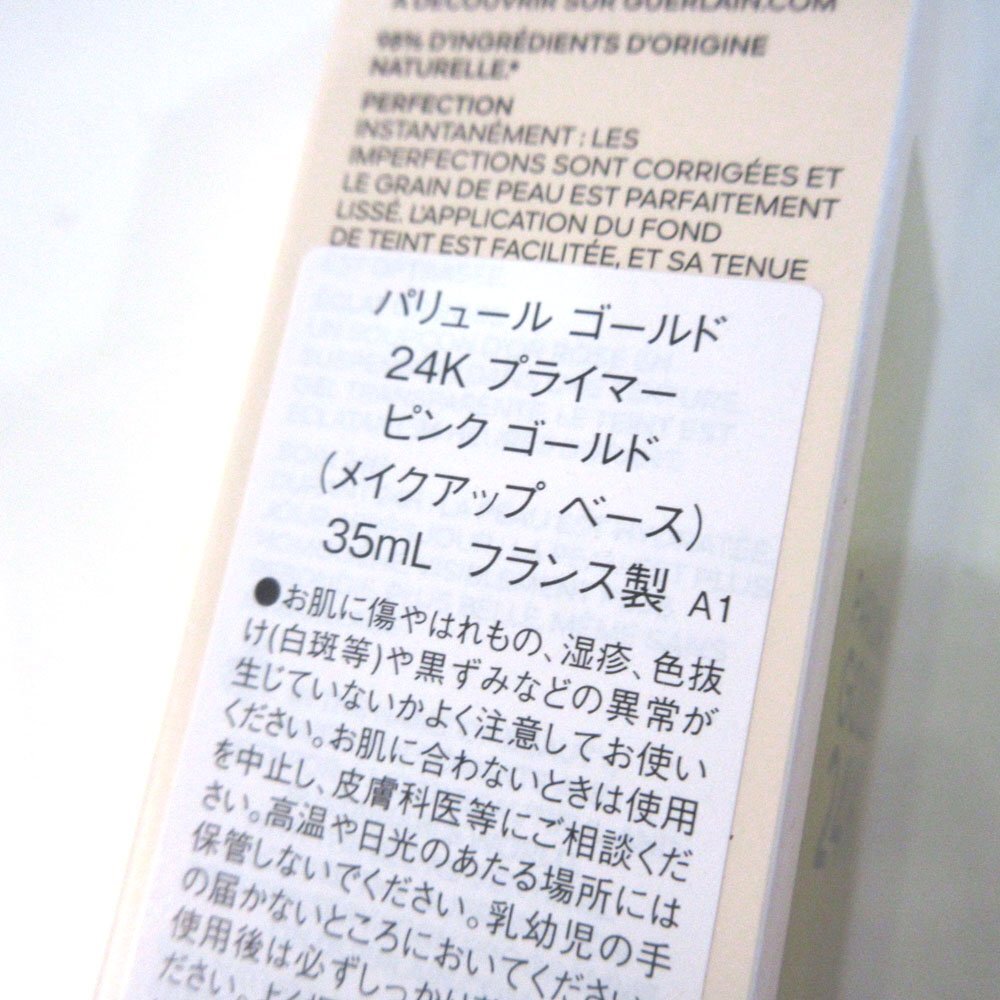 À DÉCOUVRIR SUR GUERLAIN.COM
98% D'INGRÉDIENTS D'ORIGINE
NATURELLE.*
PERFECTION
INSTANTANÉMENT : LES
IMPERFECTIONS SONT CORRIGÉES ET
LE GRAIN DE PEAU EST PARFAITEMENT
LISSÉ. L'APPLICATION DU FOND
DE TEINT EST FACILITÉE, ET SA TENUE
パリュール ゴールド
24K プライマー
ピンク ゴールド
(メイクアップ ベース)
35mL フランス製 A1
●お肌に傷やはれもの、湿疹、色抜
け(白斑等)や黒ずみなどの異常が
生じていないかよく注意してお使い
ください。お肌に合わないときは使用
を中止し、皮膚科医等にご相談くだ
さい。高温や日光のあたる場所には
保管しないでください。乳幼児の手
の届かないところにおいてください。
使用後は必ずしっかり
ださい。